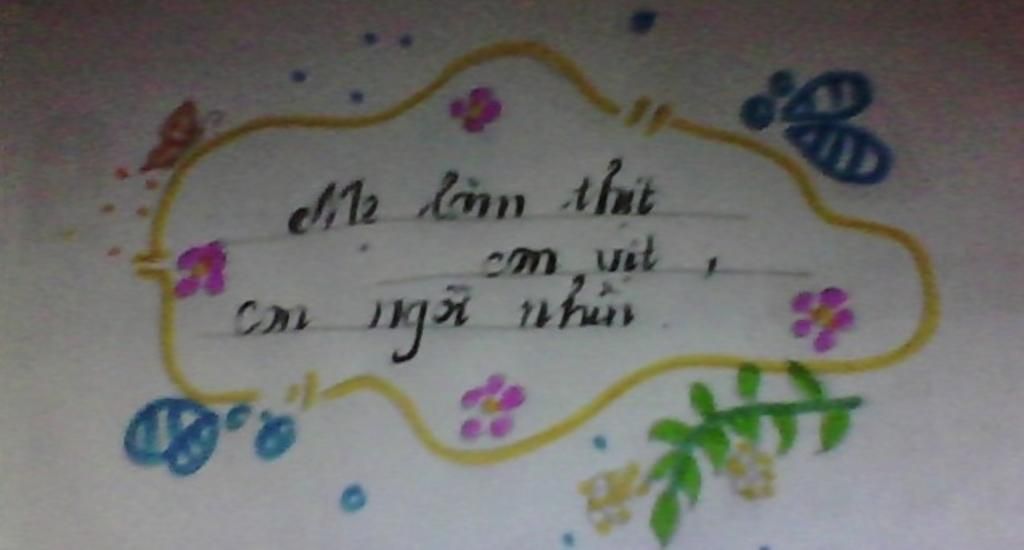 Mẹ làm thịt
con vịt,
con ngỗi nhìn